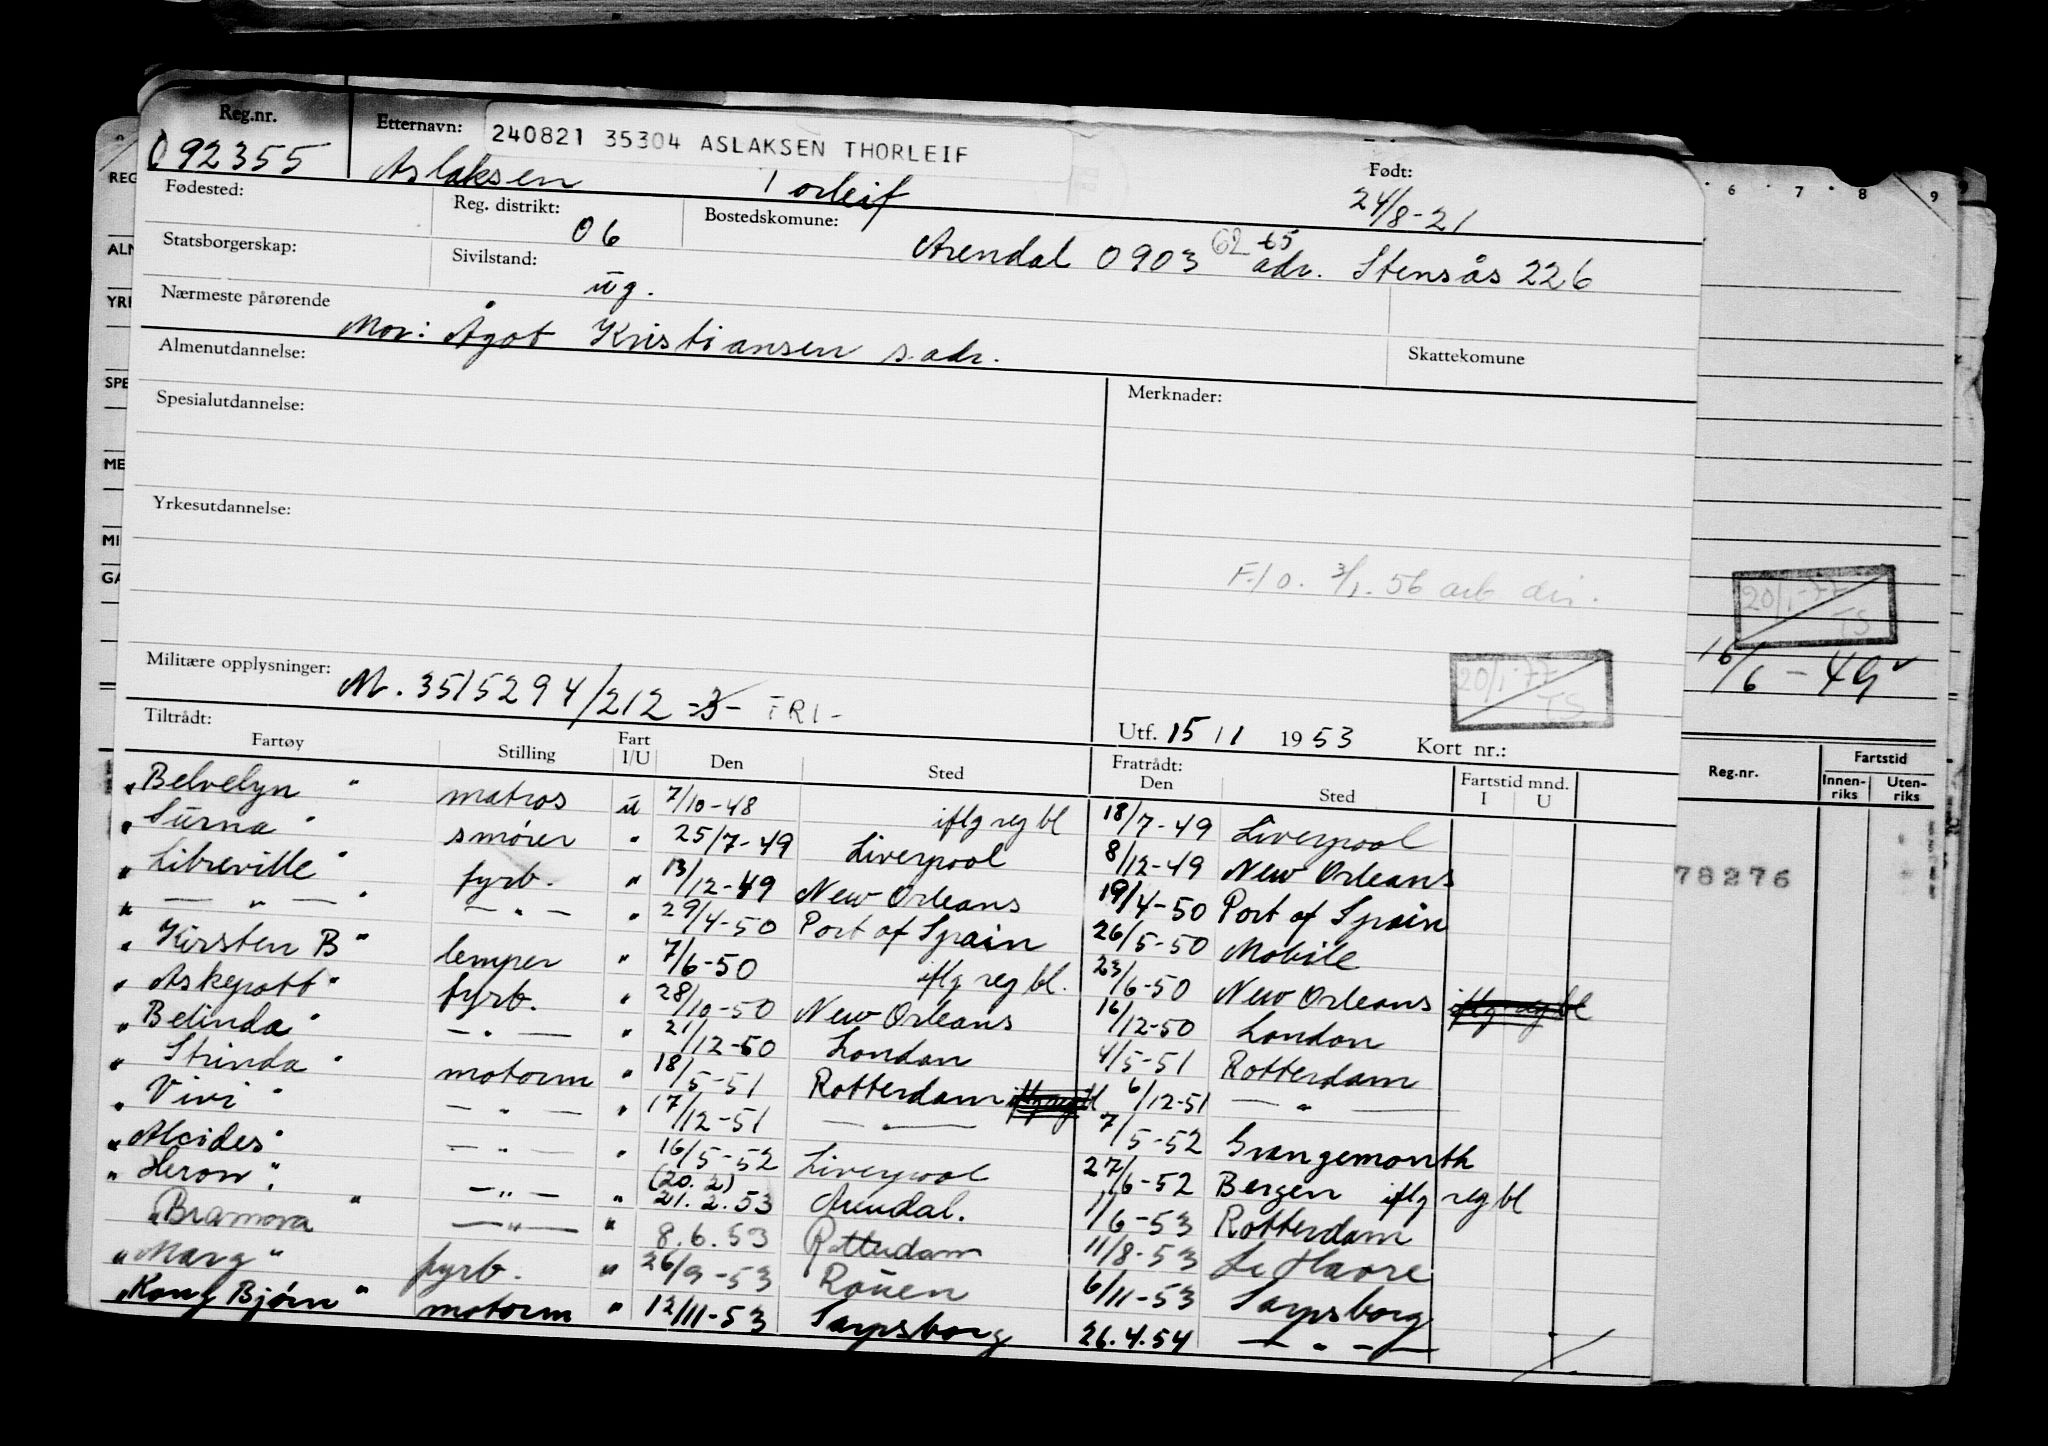 Reg.nr. Etternavn: 240821 35304 ASLAKSEN THORLEIF Født:
092355 Aslaksen Torleif 24/8-21
Fødested: Reg. distrikt: 06 Bostedskomune: Arendal 0903 62 65 adr. Stensås 226
Statsborgerskap: Sivilstand: ug.
Nærmeste pårørende Mor: Ågot Kristiansen s. adr. Skattekomune
Almenutdannelse:
Spesialutdannelse: Merknader:
Yrkesutdannelse:
F.10. 3/1.56 arb. dir.
Militære opplysninger: M. 3515294/212 -3- FRI-
20/1-77 TS
Tiltrådt: Utf. 15/1 1953 Kort nr.:
Fartøy Stilling Fart I/U Den Sted Fratrådt: Den Sted Fartstid mnd. I U
"Belvelyn" matros u 7/10-48 iflg reg bl 18/7-49 Liverpool
"Surna" smører " 25/7-49 Liverpool 8/12-49 New Orleans
"Libreville" fyrb. " 13/12-49 New Orleans 19/4-50 Port of Spain
" — " — " — " — " 29/4-50 Port of Spain 26/5-50 Mobile
"Kirsten B" lemper " 7/6-50 iflg reg bl. 23/6-50 New Orleans iflg reg bl
"Askepott" fyrb. " 28/10-50 New Orleans 16/12-50 London
"Belinda" — " — " 21/12-50 London 4/5-51 Rotterdam
"Strinda" motorm " 18/5-51 Rotterdam iflg reg bl 6/12-51 — " —
"Vivi" — " — " 17/12-51 — " — 7/5-52 Grangemonth
"Alcides" — " — " 16/5-52 Liverpool 27/6-52 Bergen iflg reg bl
"Heron" — " — " (20.2) 21.2.53 Arendal. 1/6-53 Rotterdam
"Bramora" — " — " 8.6.53 Rotterdam 11/8-53 Le Havre
"Marg" fyrb. " 26/9-53 Rouen 6/11-53 Sarpsborg
"Kong Bjørn" motorm " 12/11-53 Sarpsborg 26.4.54 — " —
REG
ALM
YRK
SPE
ME
MI
GA
6 7 8 9
20/1-77 TS
16/6-49
Reg.nr. Fartstid
Innenriks Utenriks
78276